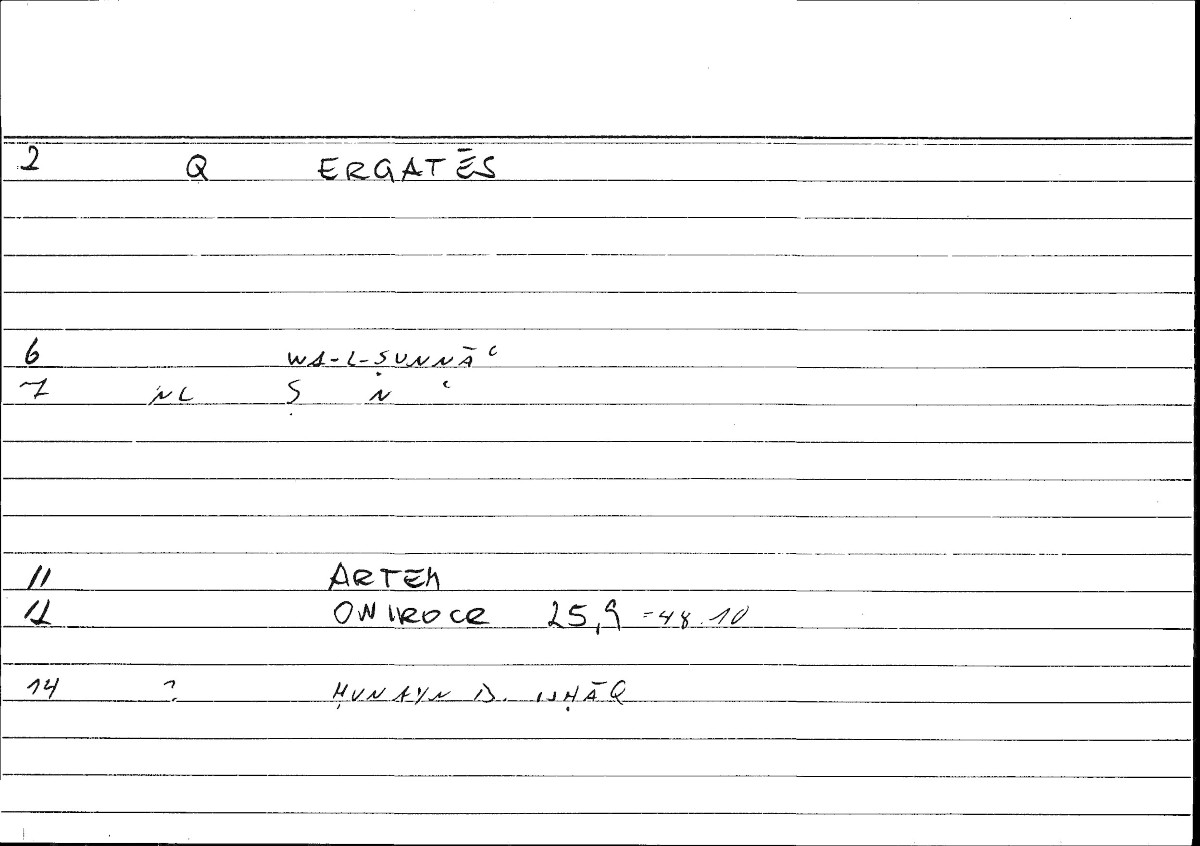 2 Q ERGATĒS
6 WA-L-ṢUNNĀʿ
7 NL Ṣ N ʿ
11 ARTEM
12 ONIROCR 25,9 =48.10
14 ? ḤUNAYN B. ISḤĀQ